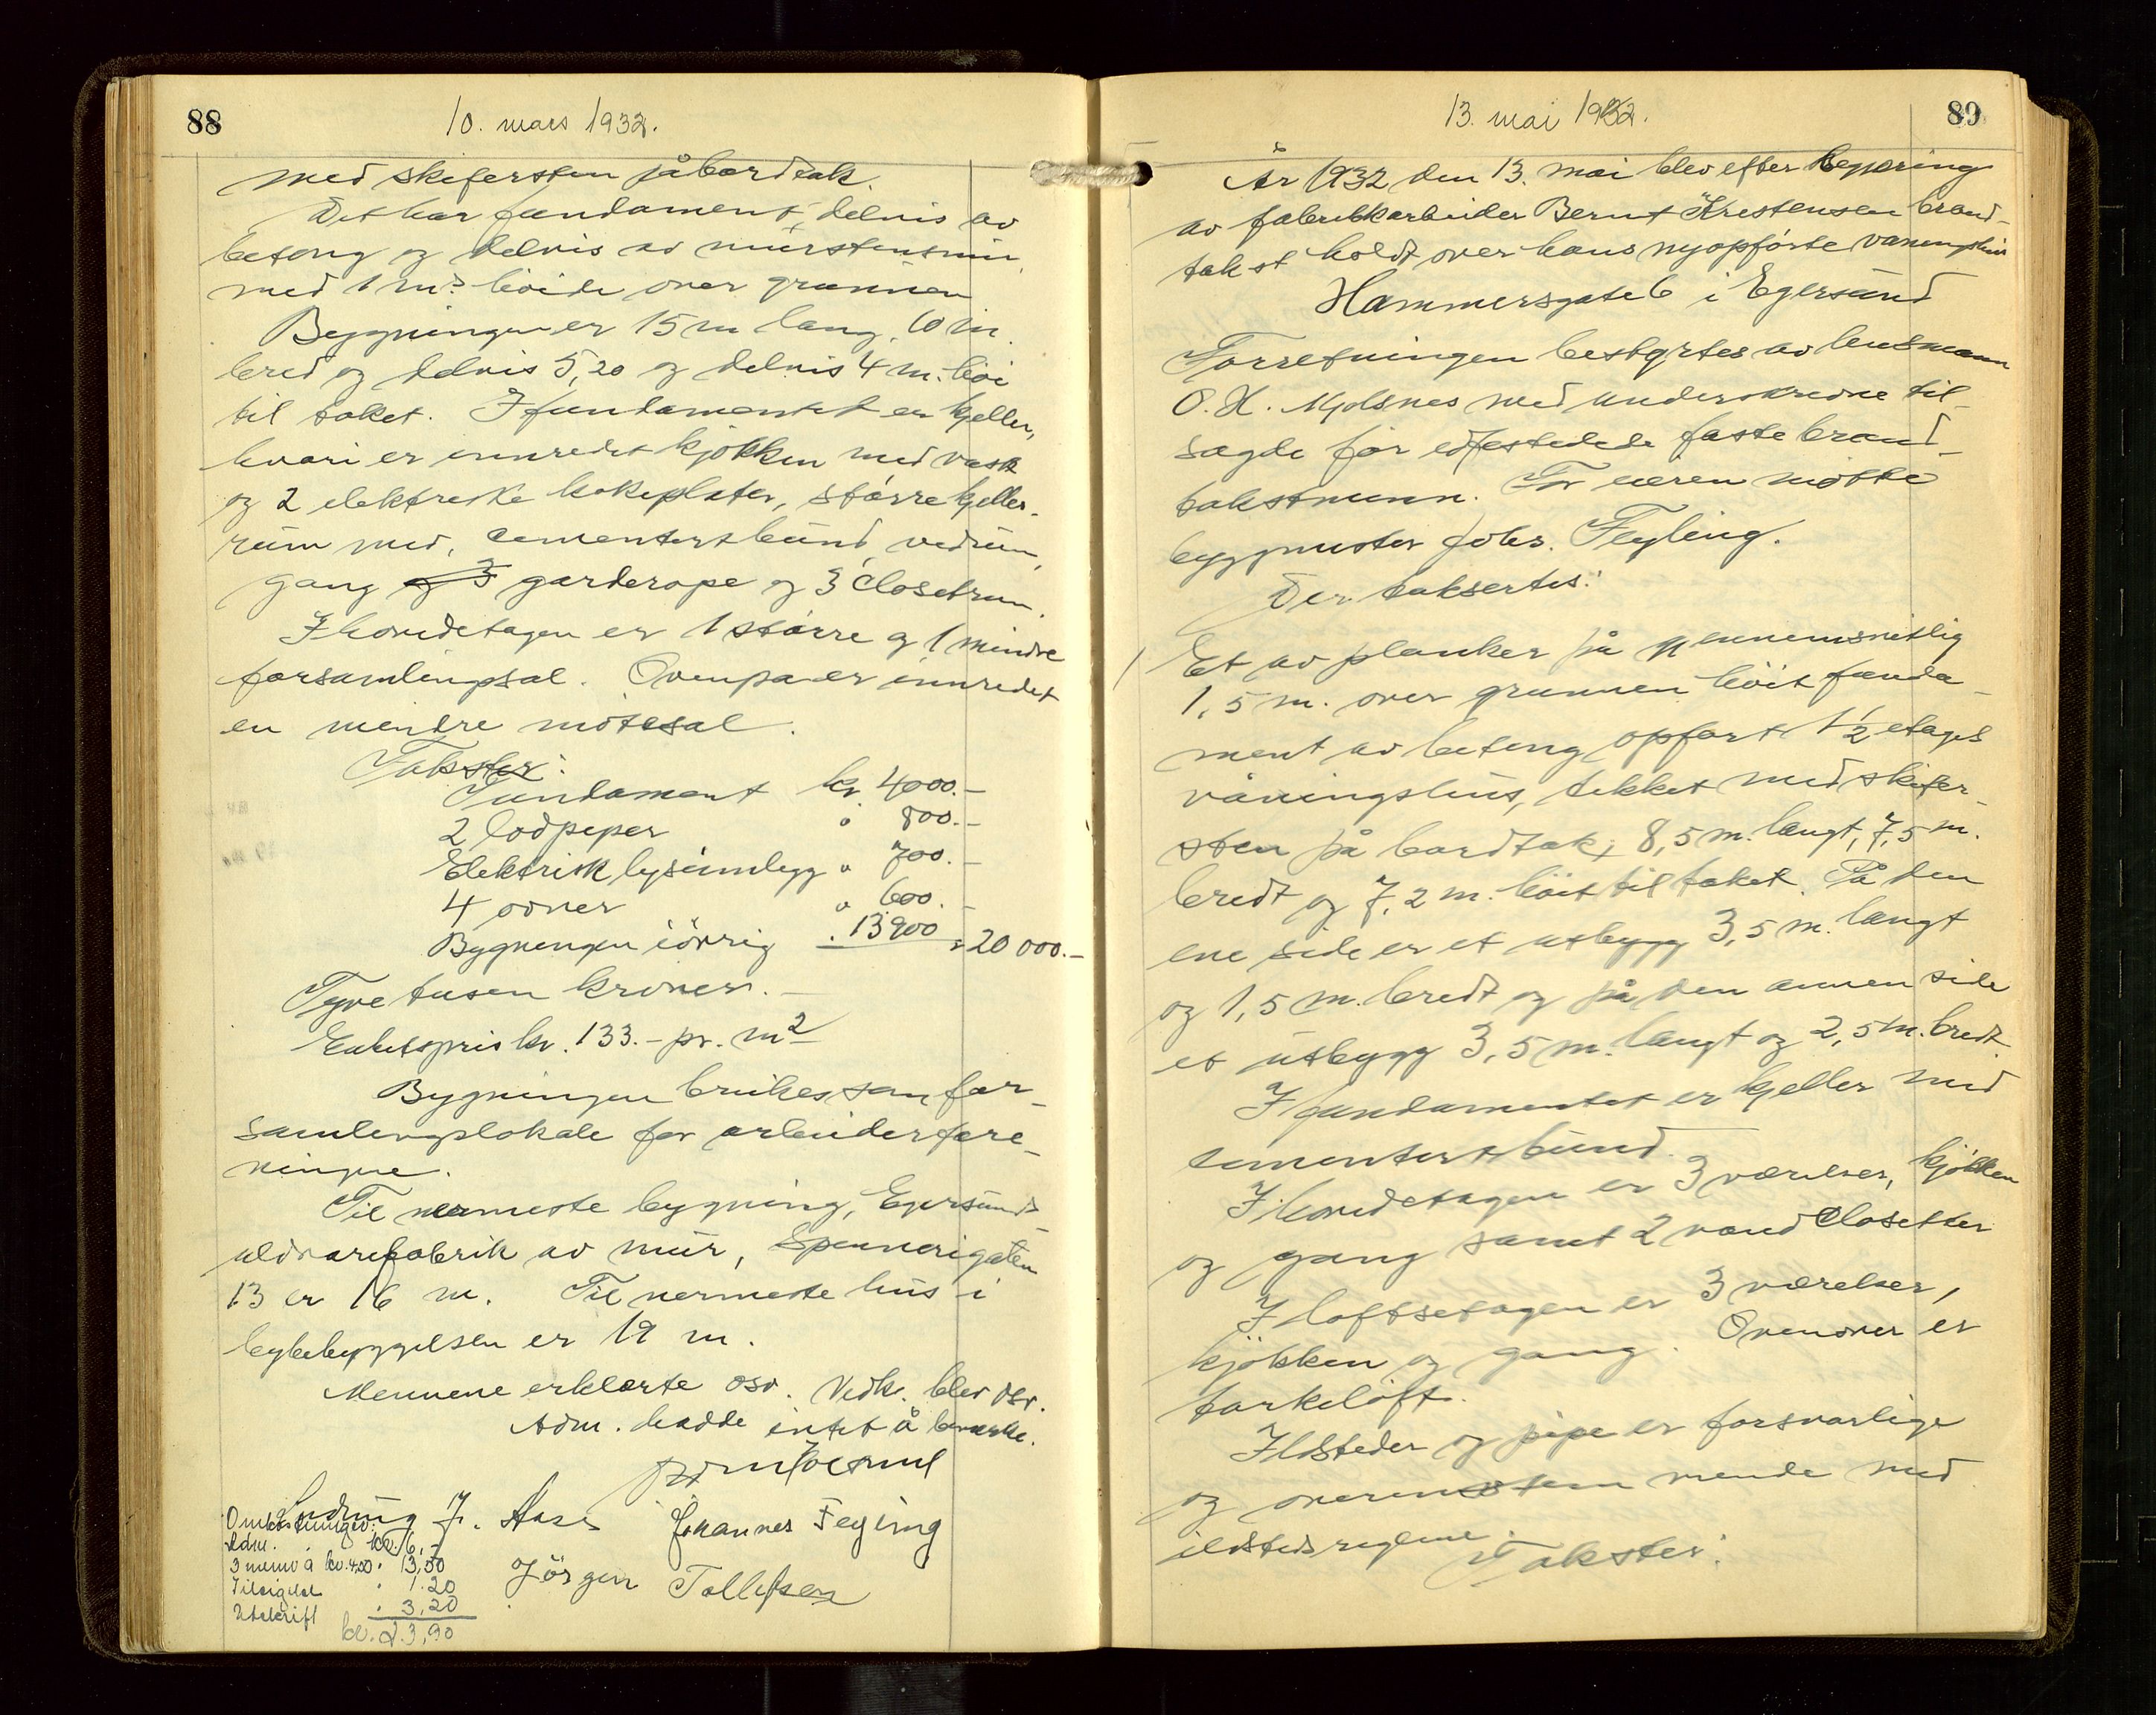 88
10. mars 1932.
med skifersten på bordtak.
Det har fundament, delvis av
betong og delvis av murstensmur
med 1 m's höide over grunnen
Bygningen er 15 m lang, 10 m.
bred og delvis 5,20 og delvis 4 m. höi
til taket. I fundamentet er kjeller,
hvori er innredet kjökken med vask
og 2 elektriske kokeplater, större kjeller-
rum med, cementert bund, vedrum,
gang og 3 garderope og 3 closetrum.
I hovedetagen er 1 större og 1 mindre
forsamlingsal. Ovenpa er innredet
en mindre mötesal.
Takster:
Fundament kr. 4000.-
2 lodpiper " 800.-
Elektrisk lysinnlegg " 700.-
4 ovner " 600.-
Bygningen iövrig " 13900 = 20 000.-
Tyve tusen kroner.-
Enhetspris kr. 133.- pr. m2
Bygningen brukes som for-
samlingslokale for arbeiderfore-
ningene.
Til nermeste bygning, Egersunds
uldvarefabrik av mur, Spennerigaten
13 er 16 m. Til nermeste hus i
bybebyggelsen er 19 m.
Mennene erklærte osv. Vedk. blev osv.
Adm. hadde intet å bemerke.
Ludvig J. Aase Johannes Feyling
Jörgen Tollefsen
Omkostninger:
Adm. kr. 6,-
3 menn a kr. 4,50 " 13,50
Tilsigelse " 1.20
Utskrift " 3,20
kr. 23,90
89
13. mai 1932.
År 1932 den 13. mai blev efter begjæring
av fabrikkarbeider Bernt Kristensen brand-
takst holdt over hans nyopförte våningshus
Hammersgate 6 i Egersund
Forretningen bestyrtes av lensmann
O. H. Mjolsnes med underskrevne til-
sagde för edfestede faste brand-
takstmenn. For eieren mötte
byggmester Johs. Feyling.
Der taksertes:
1 Et av planker på gjennemsnitlig
1,5 m. over grunnen höit funda-
ment av betong opfört 1½ etages
våningshus, tekket med skifer-
sten på bordtak, 8,5 m. langt, 7,5 m.
bredt og 7,2 m. höit til taket. På den
ene side er et utbygg 3,5 m. langt
og 1,5 m. bredt og på den annen side
et utbygg 3,5 m. langt og 2,5 m. bredt.
I fundamentet er kjeller med
cementert bund.
I hovedetagen er 3 værelser, kjökken
og gang samt 2 vandclosetter
I loftsetagen er 3 værelser,
kjökken og gang. Ovenover er
törkeloft.
Ildsteder og pipe er forsvarlige
og overensstemmende med
ildstedsreglene.
Takster: